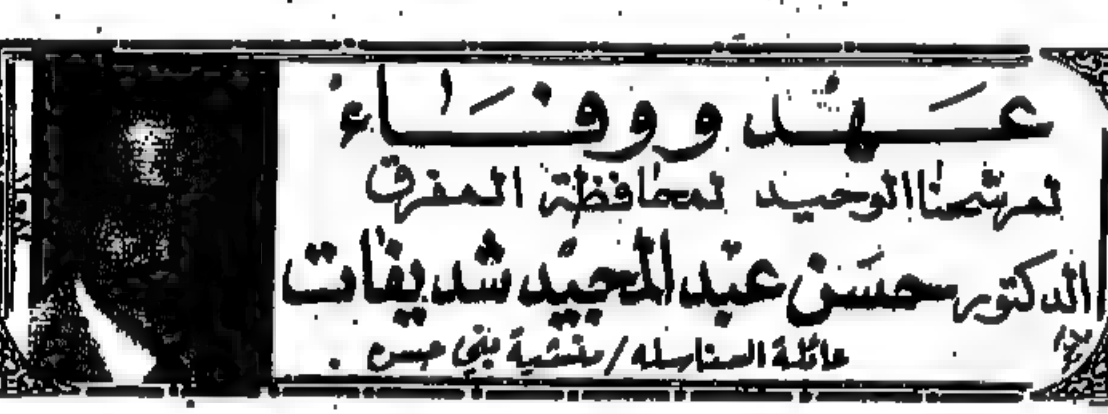 عهد ووفاء
لمرشحنا الوحيد لمحافظة المفرق
الدكتور حسن عبد المجيد شديفات
عائلة السناسله / منشية بني حسن